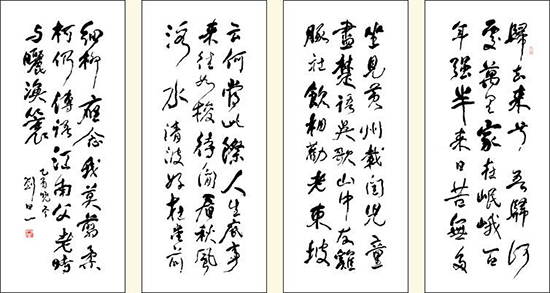 歸去來兮吾歸何
處萬里家在岷峨百
年强半來日苦無多
坐見黄州載閏兒童
盡楚語吳歌山中友雞
豚社飲相勸老東坡
云何當此際人生底事
來往如梭待閒看秋風
洛水清波好在堂前
細柳應念我莫剪柔
柯仍傳語江南父老時
與曬漁簑